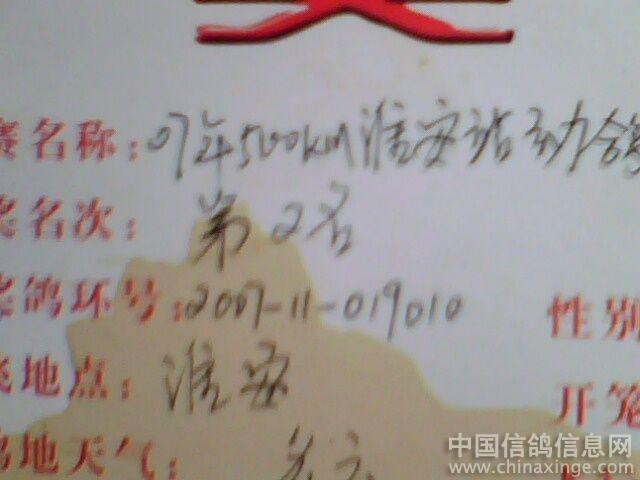 赛名称：07年500KM淮安站幼鸽
奖名次：第2名
奖鸽环号：2007-11-019010 性别
飞地点：淮安
开笼
地天气：多云
中国信鸽信息网
www.chinaxinge.com